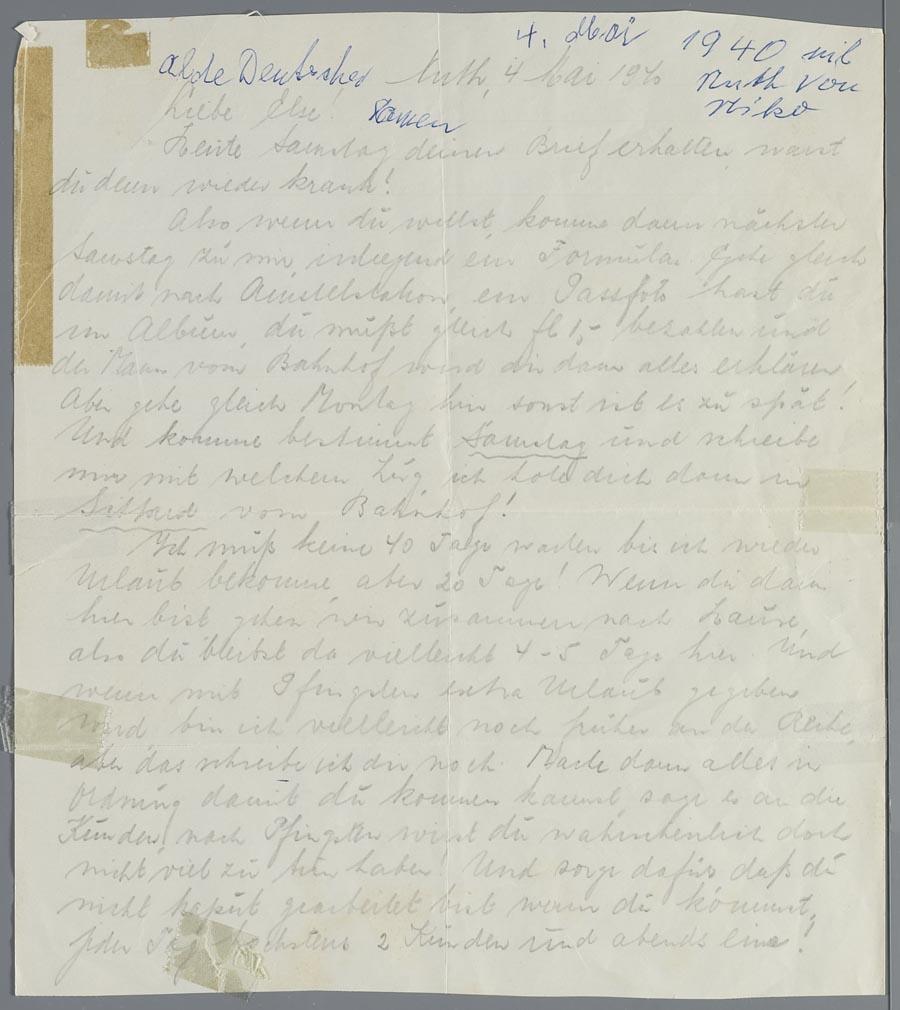 4. Mai 1940 uit
Nuth Von
Niko
alde Deutsche
Namen
Nuth, 4 Mai 1940
Liebe Else!
Heute Samstag deinen Brief erhalten, warst
du denn wieder krank!
Also wenn du willst, komme dann nächsten
Samstag zu mir, inliegend ein Formular. Gehe gleich
damit nach Amstelstation, ein Passfoto hast du
im Album, du mußt gleich fl 1,- bezahlen und
der Mann vom Bahnhof wird dir dann alles erklären.
Aber gehe gleich Montag hin sonst ist es zu spät!
Und komme bestimmt Samstag und schreibe
mir mit welchem Zug ich hole dich dann in
Sittard vom Bahnhof!
Ich muß keine 40 Tage warten bis ich wieder
Urlaub bekomme, aber 20 Tage! Wenn du dann
hier bist gehen wir zusammen nach Hause,
also du bleibst da vielleicht 4-5 Tage hier. Und
wenn mit Pfingsten extra Urlaub gegeben
wird bin ich vielleicht noch früher an der Reihe,
aber das schreibe ich dir noch. Mache dann alles in
Ordnung damit du kommen kannst, sage es an die
Kunden, nach Pfingsten wirst du wahrscheinlich doch
nicht viel zu tun haben! Und sorge dafür daß du
nicht kaput gearbeitet bist wenn du kommst,
jeden Tag höchstens 2 Kunden und abends eine!